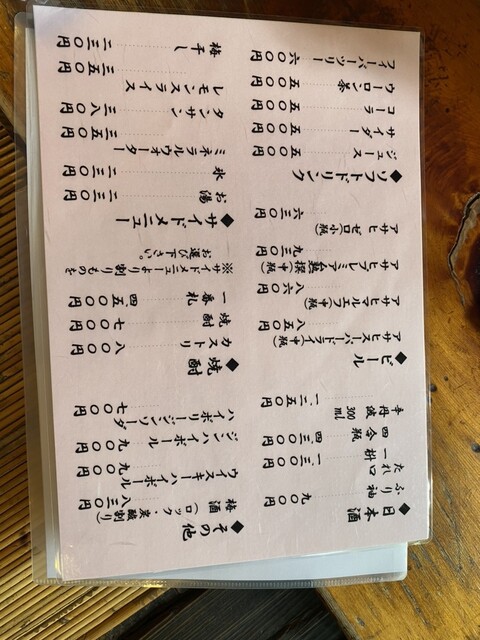 ◆日本酒
ふり袖 九〇〇円
たれ口 一枡 一、三〇〇円
四合瓶 四、三〇〇円
辛丹波 300ml 一、二五〇円
◆ビール
アサヒスーパードライ(中瓶) 八五〇円
アサヒマルエフ(中瓶) 八六〇円
アサヒプレミアム熟撰(中瓶) 九三〇円
アサヒゼロ(小瓶) 六三〇円
◆ソフトドリンク
ジュース 五〇〇円
サイダー 五〇〇円
コーラ 五〇〇円
ウーロン茶 五〇〇円
フィーバーツリー 六〇〇円
◆その他
梅酒(ロック・炭酸割り) 八三〇円
ウイスキーハイボール 九〇〇円
ジンハイボール 九〇〇円
ハイボリジンソーダ 七〇〇円
◆焼酎
カストリ 八〇〇円
焼酎 七〇〇円
一番札 四、五〇〇円
※サイドメニューより割りものを
お選び下さい。
◆サイドメニュー
お湯 二三〇円
氷 二三〇円
ミネラルウォーター 三五〇円
タンサン 三八〇円
レモンスライス 三五〇円
梅干し 二三〇円